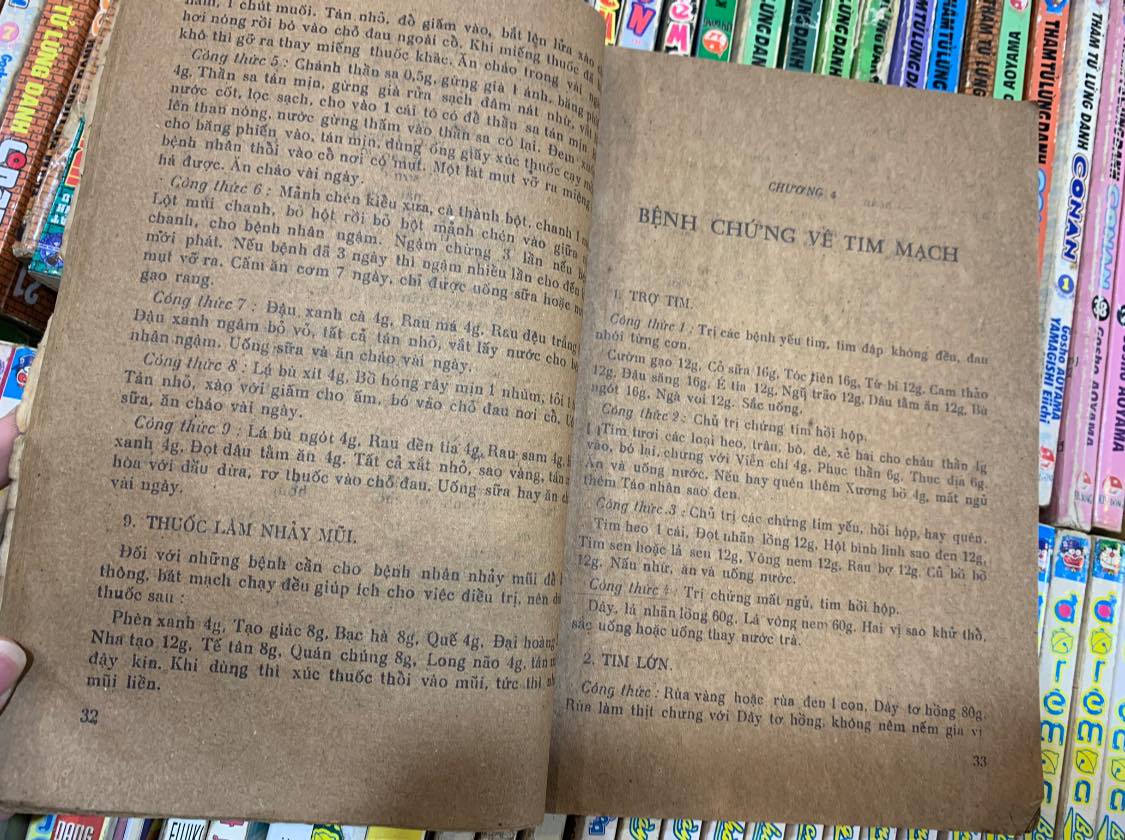 nam, 1 chút muối. Tán nhỏ, đổ giấm vào, bắt lên lửa xào
hơi nóng rồi bỏ vào chỗ đau ngoài cổ. Khi miếng thuốc đã
khô thì gỡ ra thay miếng thuốc khác. Ăn cháo trong vài
Công thức 5 : Chánh thần sa 0,5g, gừng già 1 ánh, băng phiến
4g. Thần sa tán mịn, gừng già rửa sạch đâm nát nhừ, vắt
nước cốt, lọc sạch, cho vào 1 cái tô có để thần sa tán mịn
lên than nóng, nước gừng thấm vào thần sa cô lại. Đem
cho băng phiến vào, tán mịn, dùng ống giấy xúc thuốc cạy
bệnh nhân thổi vào cổ nơi có mụt. Một lát mụt vỡ ra miệng
há được. Ăn cháo vài ngày.
Công thức 6 : Mảnh chén kiểu xưa, cà thành bột, chanh 1
Lột múi chanh, bỏ hột rồi bỏ bột mảnh chén vào giữa
chanh, cho bệnh nhân ngậm. Ngậm chừng 3 lần nếu
mới phát. Nếu bệnh đã 3 ngày thì ngậm nhiều lần cho đến
mụt vỡ ra. Cấm ăn cơm 7 ngày, chỉ được uống sữa hoặc
gạo rang.
Công thức 7 : Đậu xanh cà 4g, Rau má 4g. Rau dệu trắng
Đậu xanh ngâm bỏ vỏ, tất cả tán nhỏ, vắt lấy nước cho
nhân ngậm. Uống sữa và ăn cháo vài ngày.
Công thức 8 : Lá bù xít 4g, Bồ hóng rây mịn 1 nhúm, tỏi 1
Tán nhỏ, xào với giấm cho ấm, bó vào chỗ đau nơi cổ.
sữa, ăn cháo vài ngày.
Công thức 9 : Lá bù ngót 4g, Rau dền tía 4g, Rau sam 4g,
xanh 4g, Đọt dâu tằm ăn 4g. Tất cả xắt nhỏ, sao vàng, tán
hòa với dầu dừa, rơ thuốc vào chỗ đau. Uống sữa hay ăn
vài ngày.
9. THUỐC LÀM NHẢY MŨI.
Đối với những bệnh cần cho bệnh nhân nhảy mũi để
thông, bắt mạch chạy đều giúp ích cho việc điều trị, nên
thuốc sau :
Phèn xanh 4g, Tạo giác 8g, Bạc hà 8g, Quế 4g, Đại hoàng
Nha tạo 12g, Tế tân 8g, Quán chúng 8g, Long não 4g, tán
đậy kín. Khi dùng thì xúc thuốc thổi vào mũi, tức thì
mũi liền.
32
CHƯƠNG 4
BỆNH CHỨNG VỀ TIM MẠCH
1. TRỢ TIM.
Công thức 1 : Trị các bệnh yếu tim, tim đập không đều, đau
nhói từng cơn.
Cườm gạo 12g, Cỏ sữa 16g, Tóc tiên 16g, Từ bi 12g, Cam thảo
12g, Đậu săng 16g. É tía 12g, Ngũ trảo 12g, Dâu tằm ăn 12g, Bù
ngót 16g, Ngà voi 12g. Sắc uống.
Công thức 2 : Chủ trị chứng tim hồi hộp.
Tim tươi các loại heo, trâu, bò, dê, xẻ hai cho châu thần 4g
vào, bó lại, chưng với Viễn chí 4g, Phục thần 6g, Thục địa 6g.
Ăn và uống nước. Nếu hay quên thêm Xương bồ 4g, mất ngủ
thêm Táo nhân sao đen.
Công thức 3 : Chủ trị các chứng tim yếu, hồi hộp, hay quên.
Tim heo 1 cái, Đọt nhãn lồng 12g, Hột bình linh sao đen 12g,
Tim sen hoặc lá sen 12g, Vông nem 12g, Rau bợ 12g, Củ bồ bồ
12g. Nấu nhừ, ăn và uống nước.
Công thức 4 : Trị chứng mất ngủ, tim hồi hộp.
Dây, lá nhãn lồng 60g. Lá vông nem 60g. Hai vị sao khử thổ,
sắc uống hoặc uống thay nước trà.
2. TIM LỚN.
Công thức : Rùa vàng hoặc rùa đen 1 con, Dây tơ hồng 80g.
Rùa làm thịt chưng với Dây tơ hồng, không nêm nếm gia vị
33
TỬ LÙNG DANH
THÁM TỬ LỪNG DANH
CONAN
1
GOSHO AOYAMA
YAMAGISHI Eiichi
21
FUJIKO